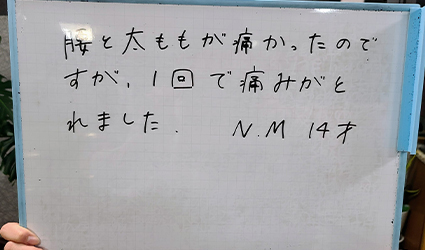 腰と太ももが痛かったので
すが、1回で痛みがと
れました. N.M 14才